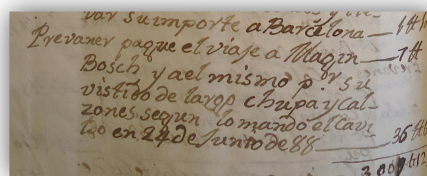 var su importe a Barcelona — 1 ft
Prevaner paque el viaje a Magin — 7 ft
Bosch y ael mismo p.r su
vistido de largo chupa y cal-
zones segun lo mando el Cav-
ldo en 24 de Junto de 88 — 36 ft 6
3009 ft 12